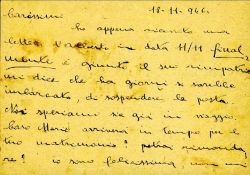 18-11-946.
Carissimi
ho appena ricevuto una
lettera V/ariante in data 11/11 finalmente
è giunto il suo rimpatrio
mi dice che tra giorni si sarebbe
imbarcato, di sospendere la posta.
Noi speriamo sia già in viaggio.
caro Mario arriverà in tempo per il
tuo matrimonio? potrai rimanda
re? io sono felicissima, non mi